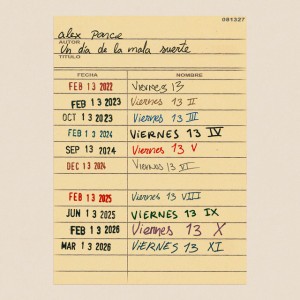 091327
alex Ponce
AUTOR
Un día de la mala suerte
TÍTULO
FECHA NOMBRE
FEB 13 2022 Viernes 13
FEB 13 2023 Viernes 13 II
OCT 13 2023 Viernes 13 III
FEB 13 2024 VIERNES 13 IV
SEP 13 2024 Viernes 13 V
DEC 13 2024 Viernes 13 VI
FEB 13 2025 Viernes 13 VIII
JUN 13 2025 VIERNES 13 IX
FEB 13 2026 Viernes 13 X
MAR 13 2026 VIERNES 13 XI